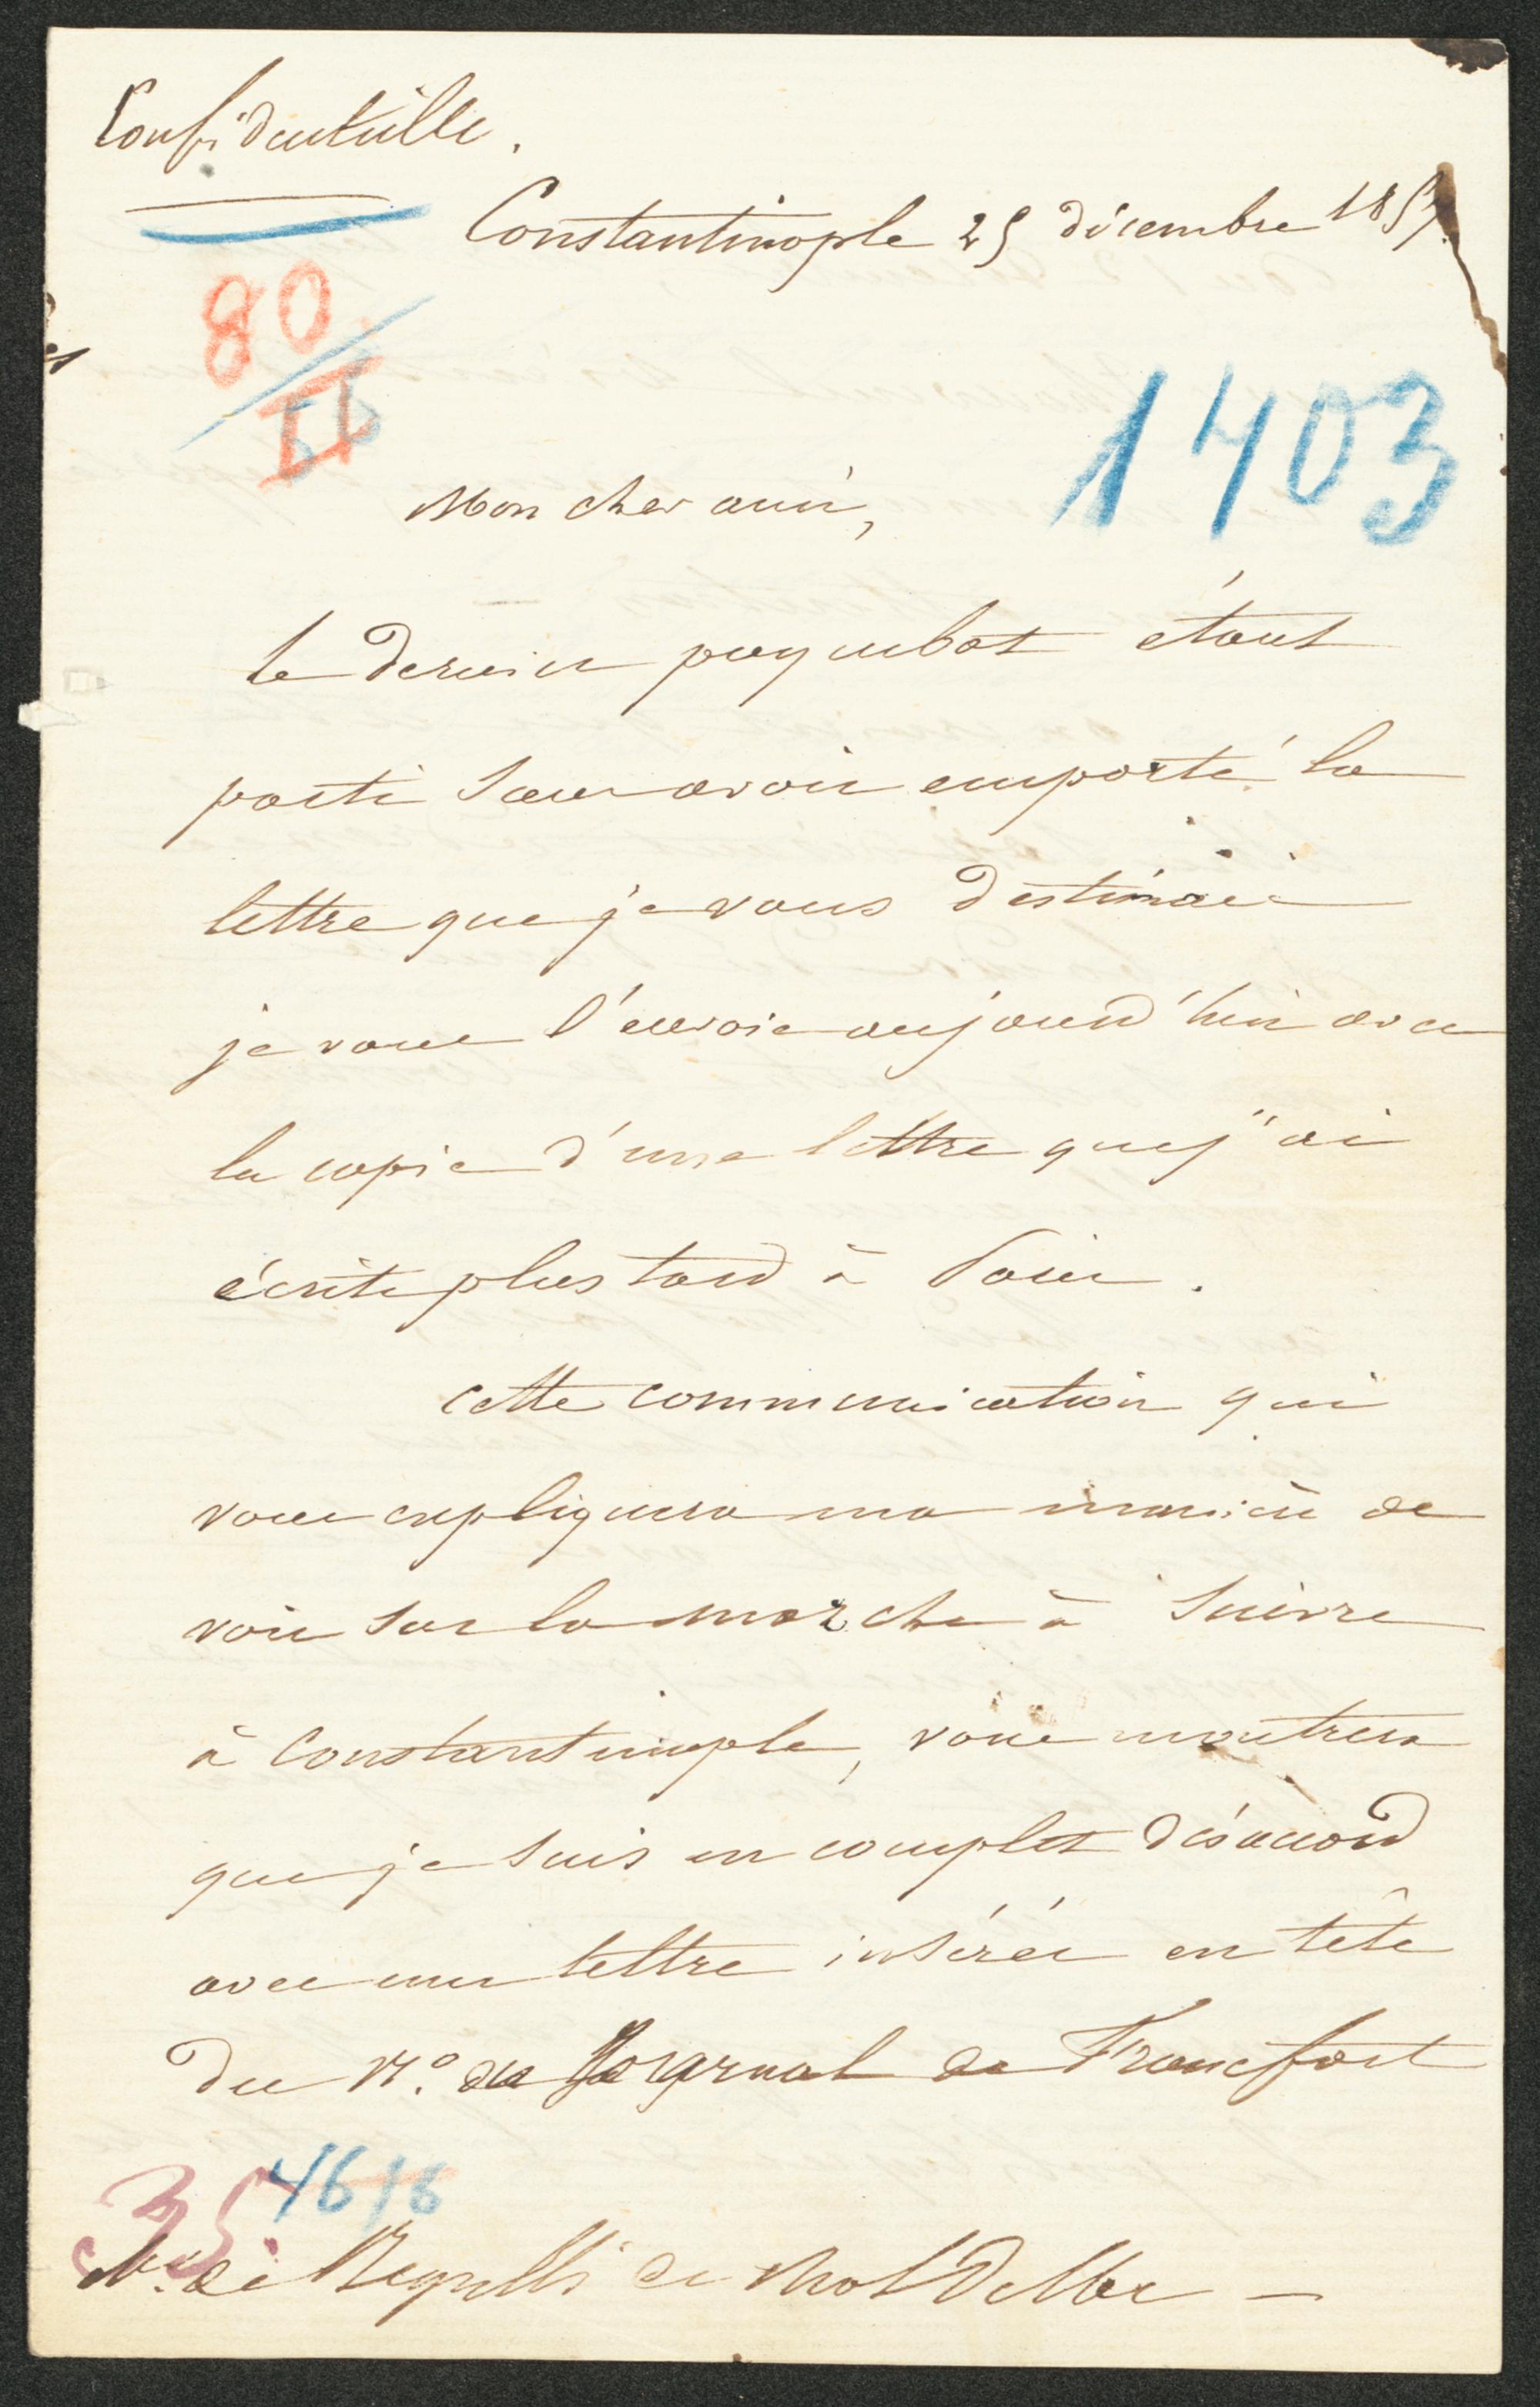 Confidentielle.
Constantinople 25 décembre 1857.
80
II
1403
Mon cher ami,
le dernier paquebot étant
parti sans avoir emporté la
lettre que je vous destinais
je vous l'envoie aujourd'hui avec
la copie d'une lettre que j'ai
écrite plus tard à Paris.
Cette communication qui
vous expliquera ma manière de
voir sur la marche à suivre
à Constantinople, vous montrera
que je suis en complet désaccord
avec une lettre insérée en tête
du N.o du Journal de Francfort
35 4616
Mr. de Negrelli de Moldelbe —